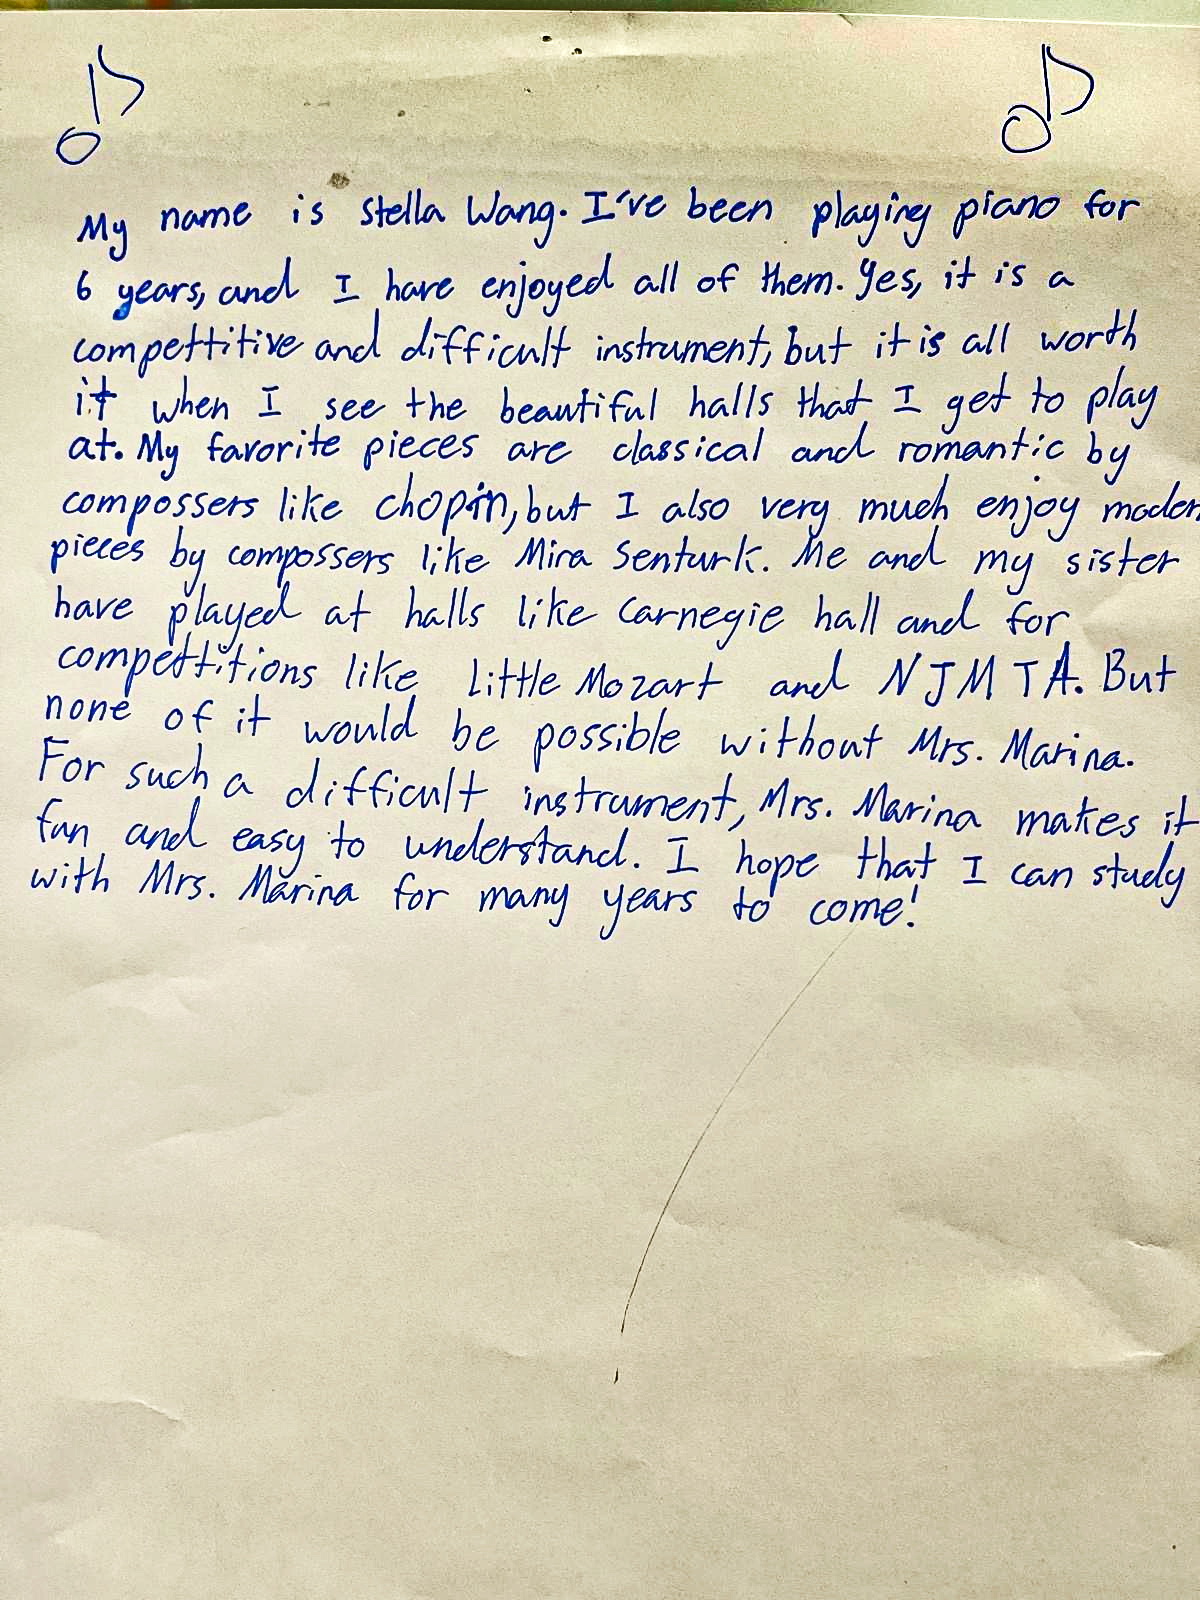 My name is Stella Wang. I've been playing piano for
6 years, and I have enjoyed all of them. Yes, it is a
compettitive and difficult instrument, but it is all worth
it when I see the beautiful halls that I get to play
at. My favorite pieces are classical and romantic by
compossers like Chopin, but I also very much enjoy modern
pieces by compossers like Mira Senturk. Me and my sister
have played at halls like Carnegie hall and for
compettitions like Little Mozart and NJMTA. But
none of it would be possible without Mrs. Marina.
For such a difficult instrument, Mrs. Marina makes it
fun and easy to understand. I hope that I can study
with Mrs. Marina for many years to come!